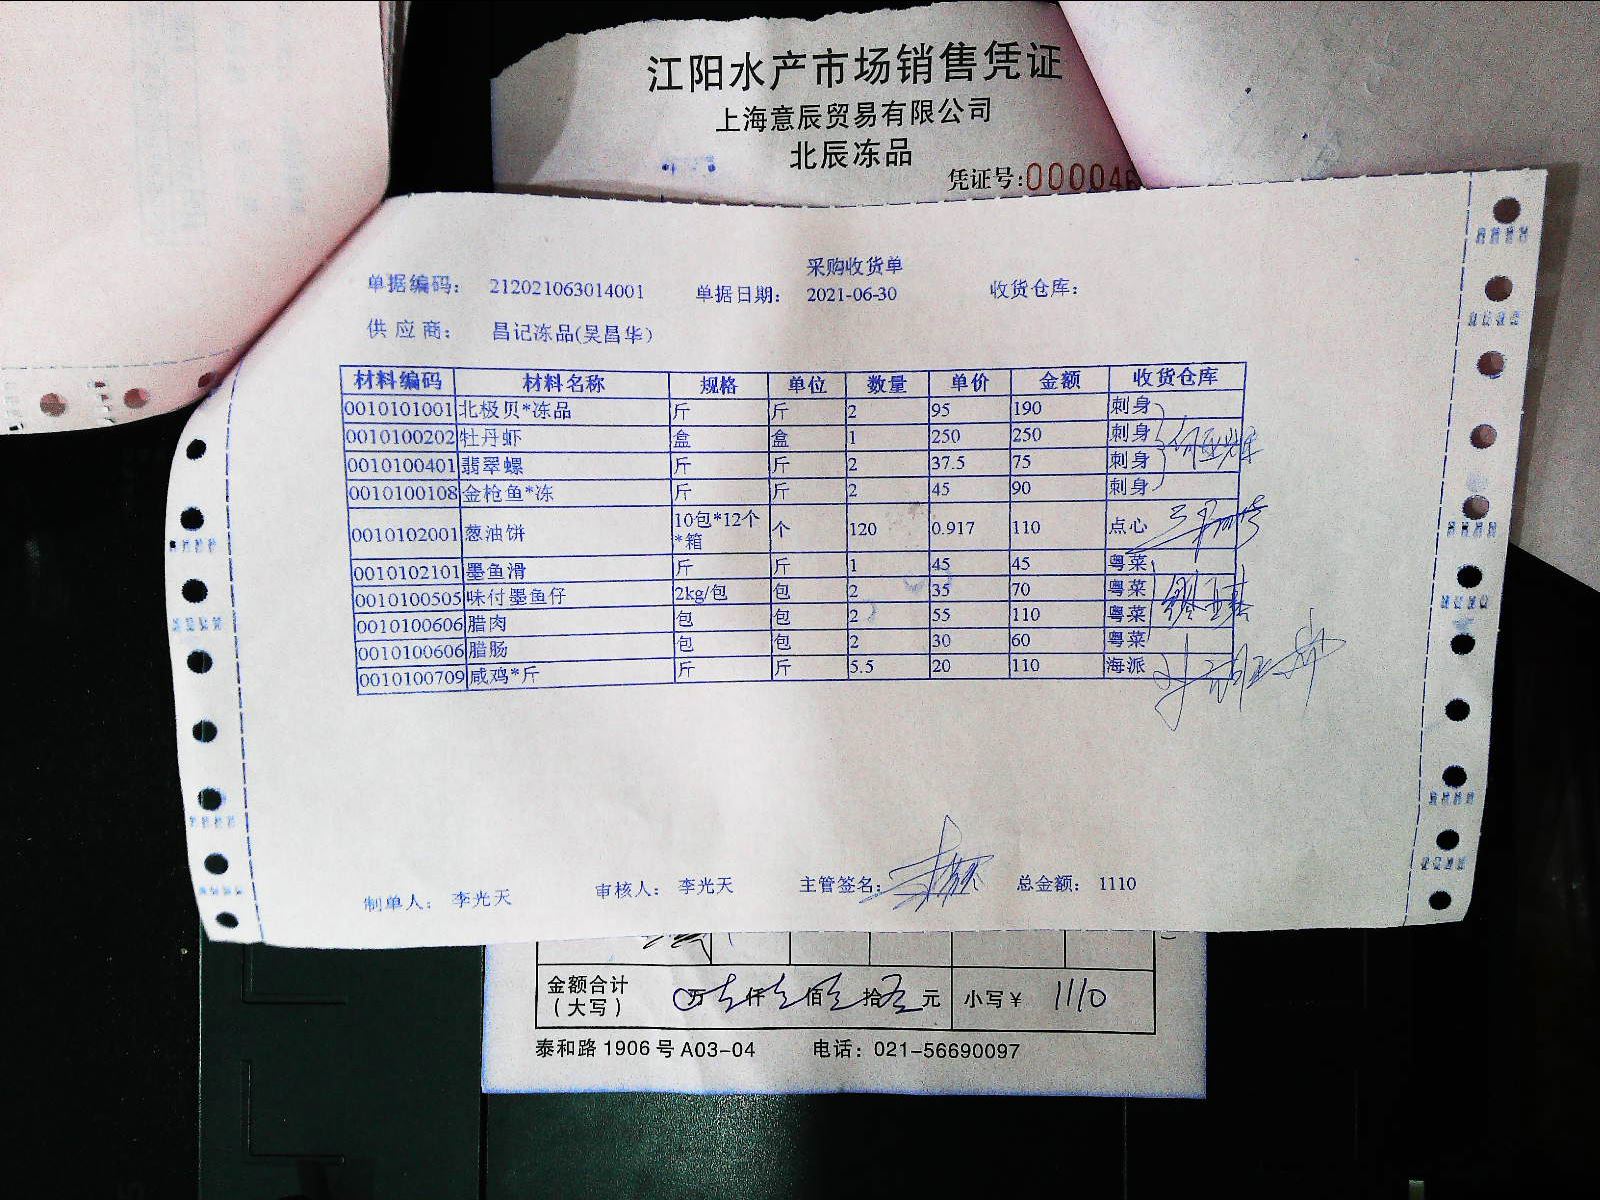 江阳水产市场销售凭证
上海意辰贸易有限公司
北辰冻品
凭证号:000046
采购收货单
单据编码: 212021063014001 单据日期: 2021-06-30 收货仓库:
供应商: 昌记冻品(吴昌华)
材料编码 材料名称 规格 单位 数量 单价 金额 收货仓库
0010101001 北极贝*冻品 斤 斤 2 95 190 刺身
0010100202 牡丹虾 盒 盒 1 250 250 刺身
0010100401 翡翠螺 斤 斤 2 37.5 75 刺身
0010100108 金枪鱼*冻 斤 斤 2 45 90 刺身
0010102001 葱油饼 10包*12个*箱 个 120 0.917 110 点心
0010102101 墨鱼滑 斤 斤 1 45 45 粤菜
0010100505 味付墨鱼仔 2kg/包 包 2 35 70 粤菜
0010100606 腊肉 包 包 2 55 110 粤菜
0010100606 腊肠 包 包 2 30 60 粤菜
0010100709 咸鸡*斤 斤 斤 5.5 20 110 海派
制单人: 李光天 审核人: 李光天 主管签名: 总金额: 1110
金额合计(大写) 万 仟 佰 拾 元 小写¥ 1110
泰和路1906号A03-04 电话: 021-56690097